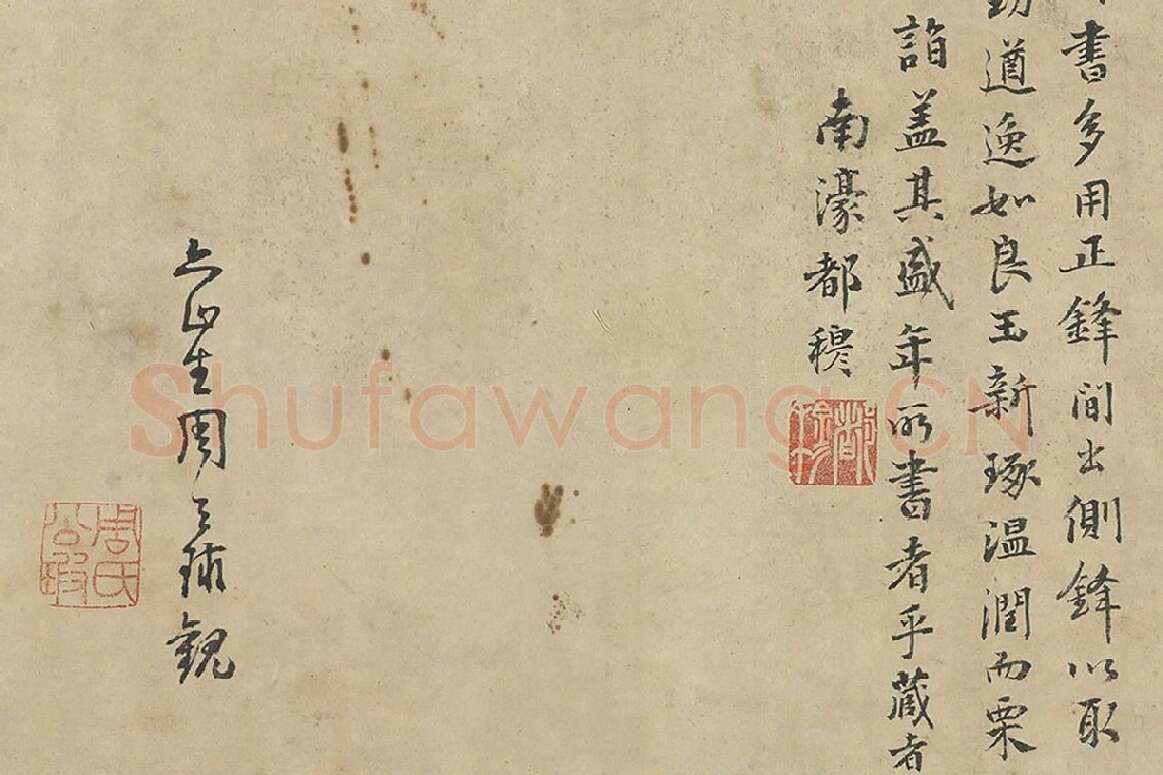 書多用正鋒間出側鋒以取
遒逸如良玉新琢温潤而栗
詣盖其盛年所書者乎藏者
南濠都穆
六止生周之球觀
周氏公瑕
Shufawang.CN